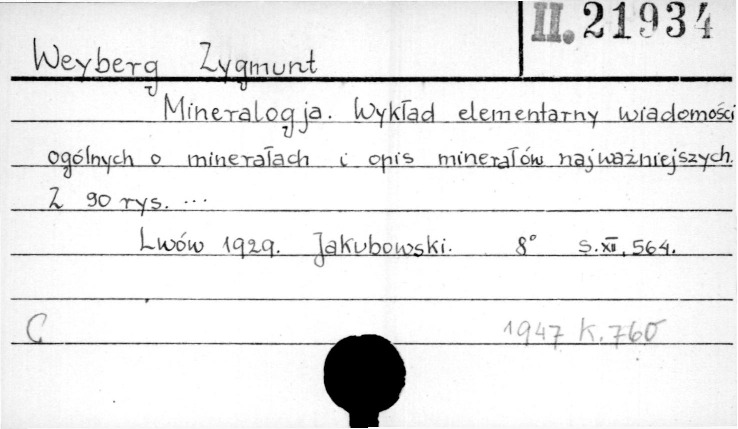 II. 21934
Weyberg Zygmunt
Mineralogja. Wykład elementarny wiadomości
ogólnych o minerałach i opis minerałów najważniejszych.
Z 90 rys. ...
Lwów 1929. Jakubowski. 8° s. XII, 564.
C 1947 K. 760